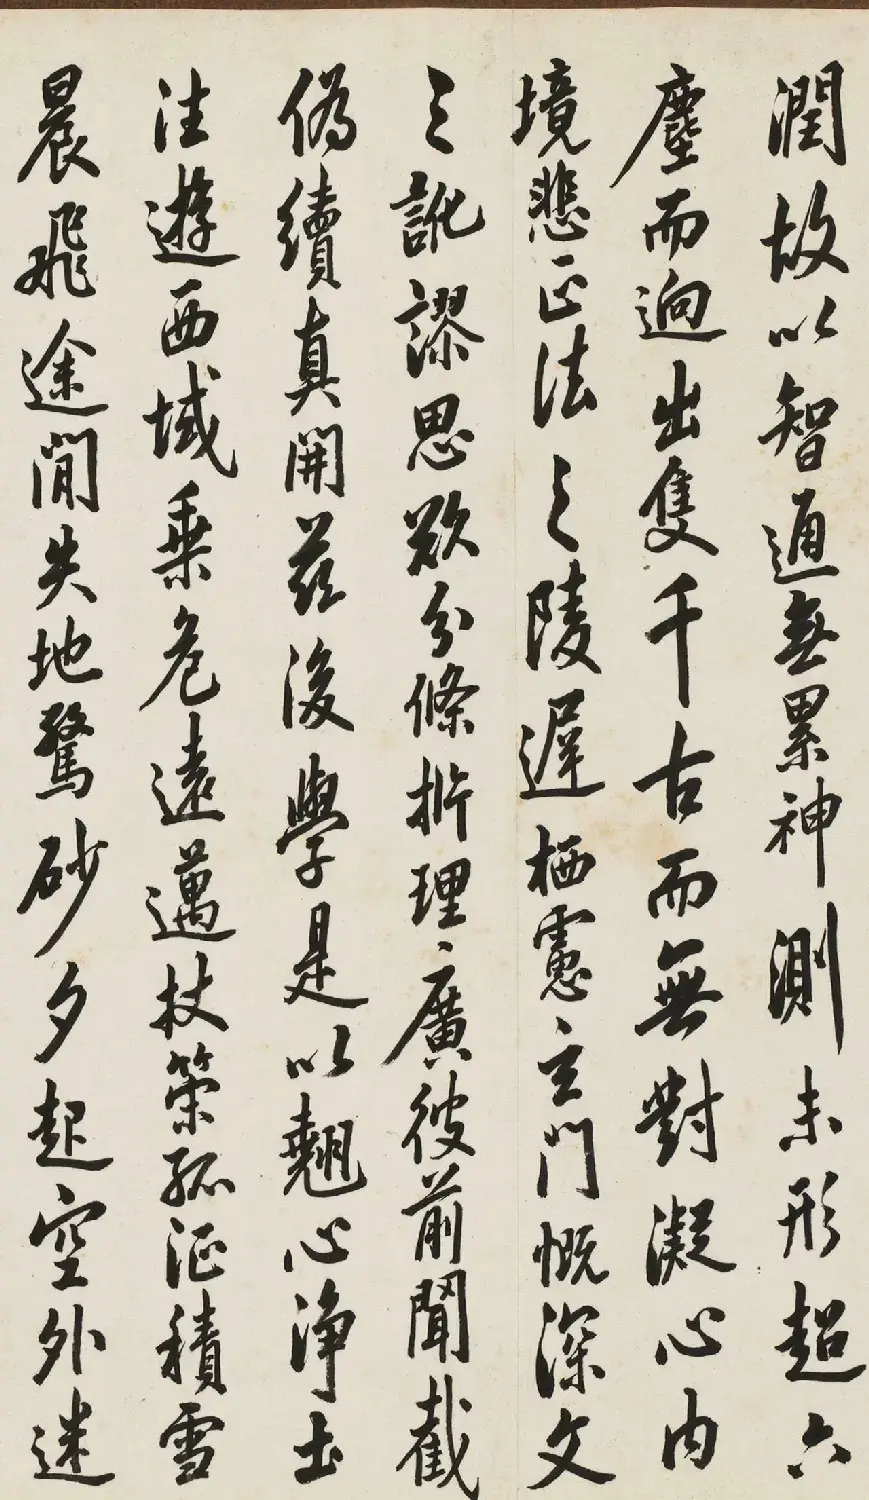 潤故以智通無累神測未形超六
塵而迥出隻千古而無對凝心内
境悲正法之陵遲栖慮玄門慨深文
之訛謬思欲分條析理廣彼前聞截
偽續真開茲後學是以翹心浄土
法遊西域乗危遠邁杖策孤征積雪
晨飛途間失地驚砂夕起空外迷